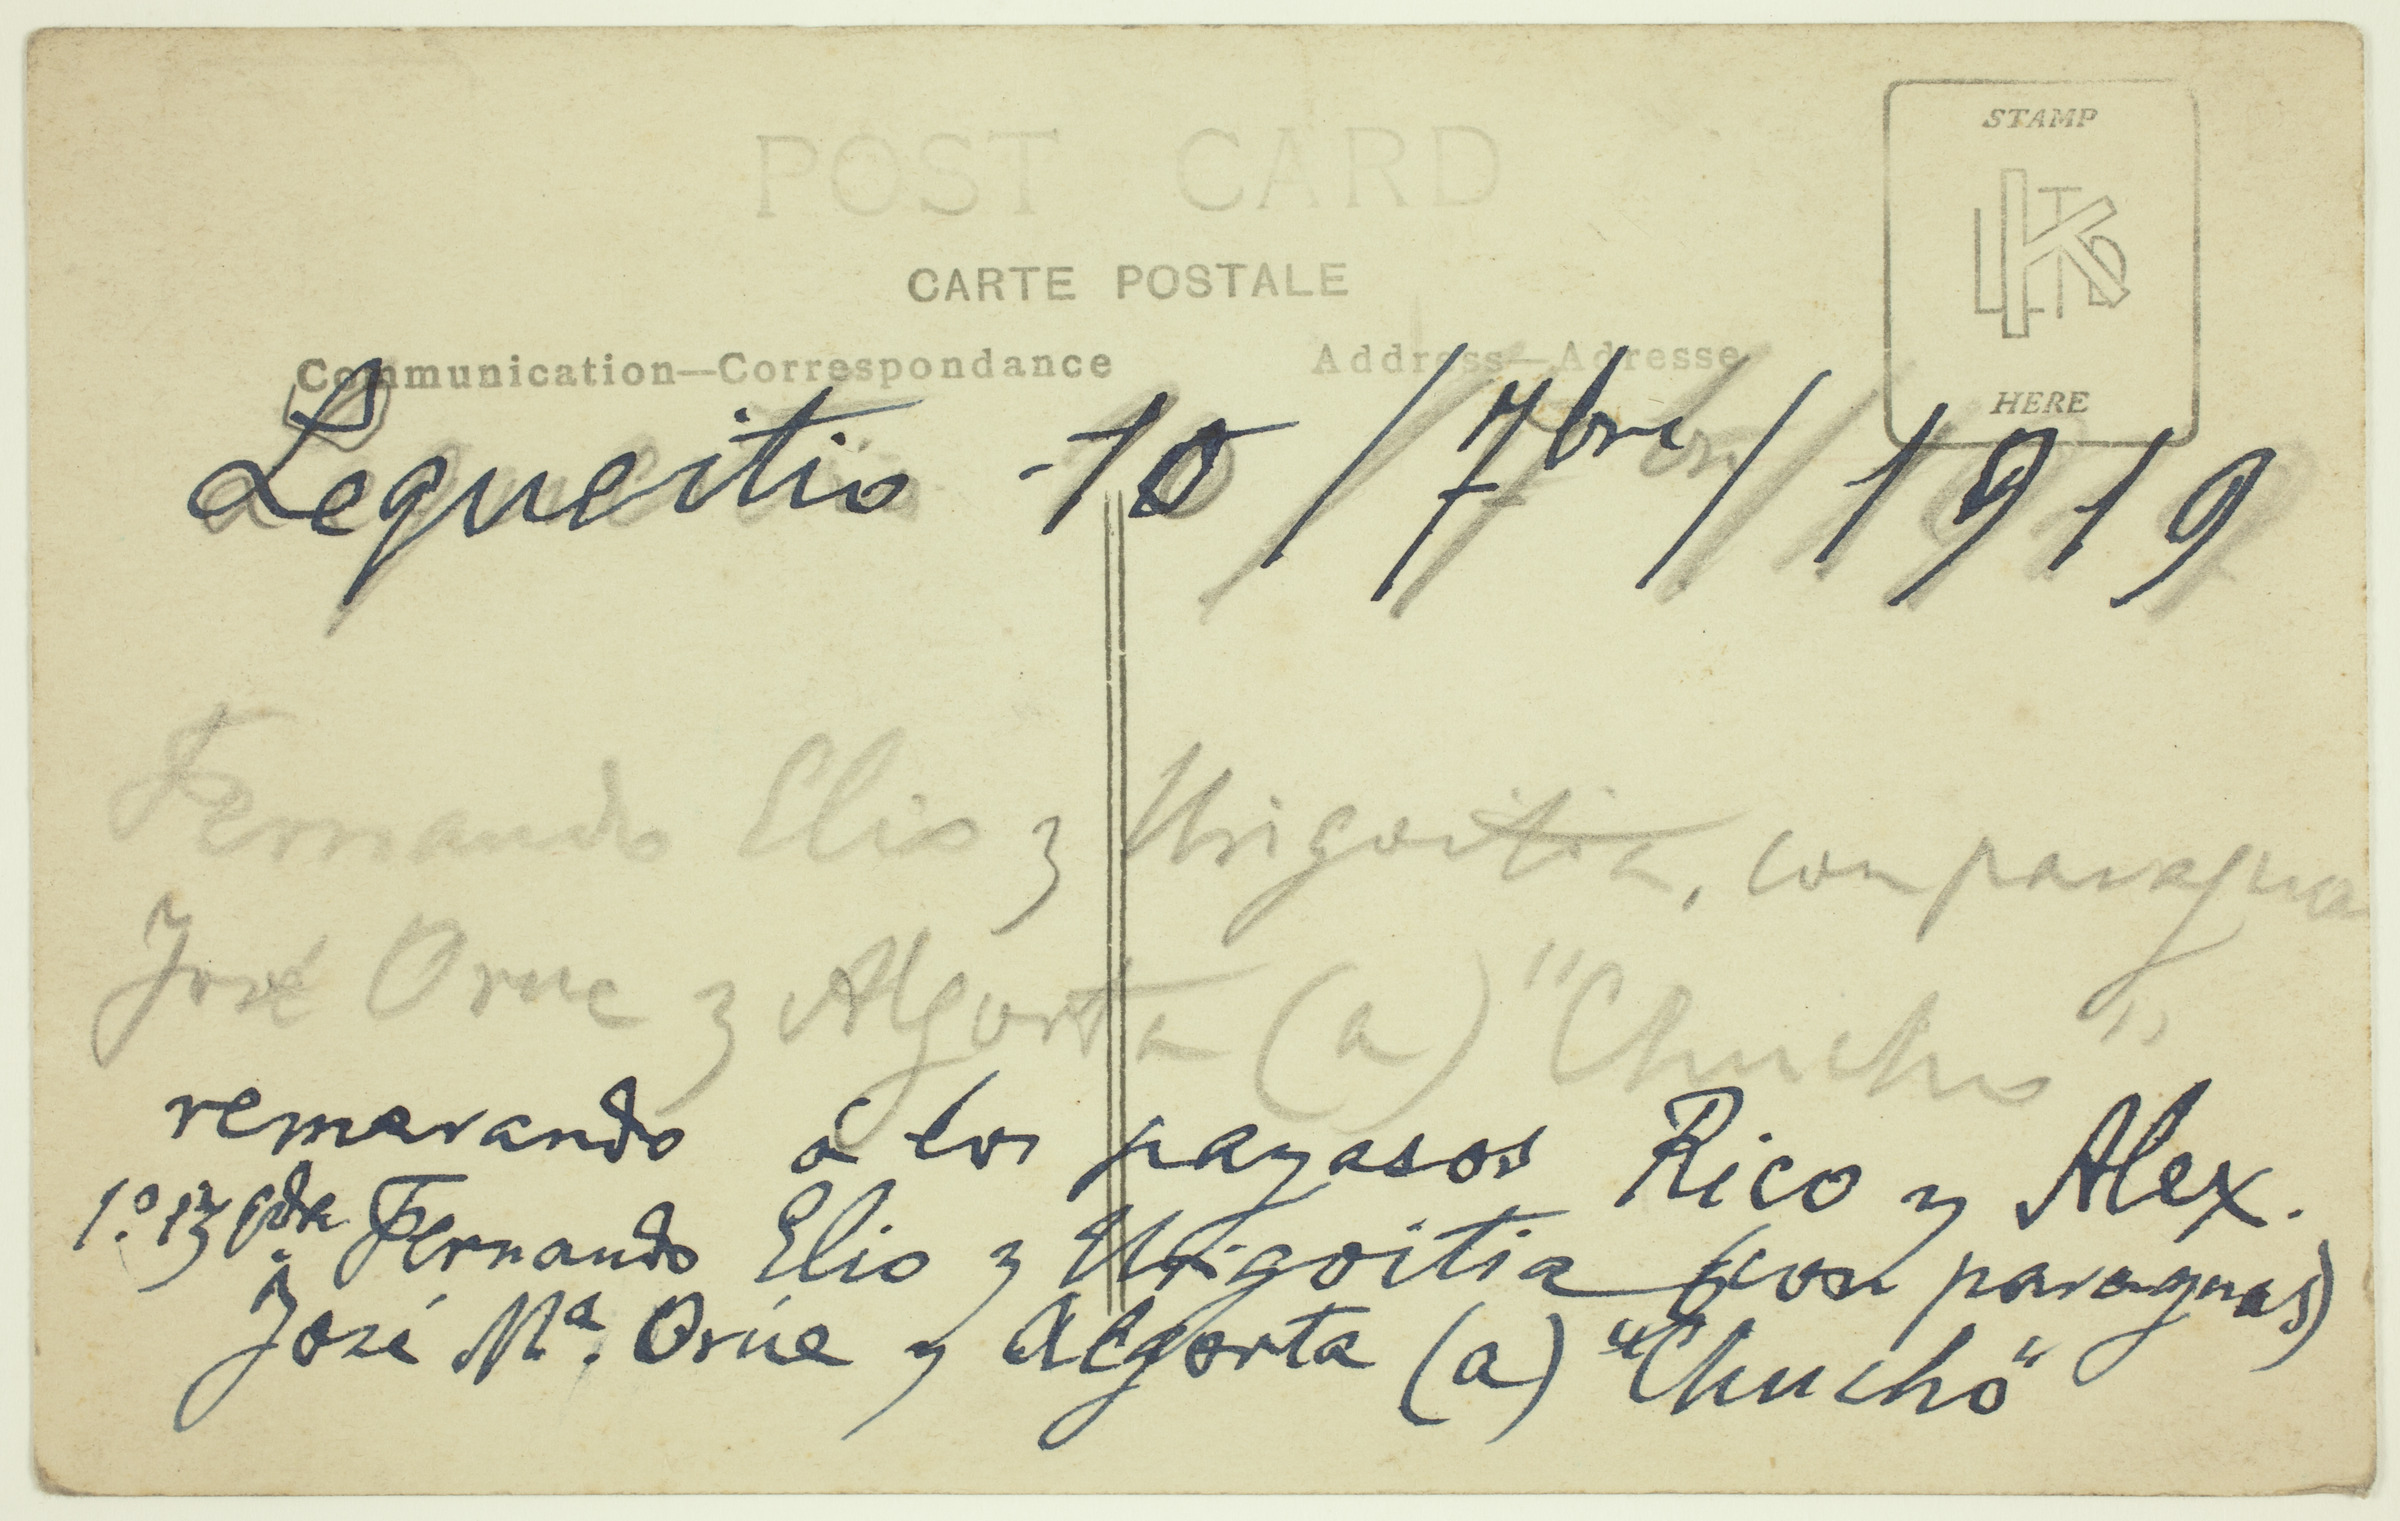 POST CARD
STAMP
K LTD
HERE
CARTE POSTALE
Communication—Correspondance
Address—Adresse
Lequeitio -10/7bre/1919
Fernando Elio y Urigoitia, con paragua
José Orue y Algorta (a) "Chucho"
remarando á los payasos Rico y Alex.
1.º izqda Fernando Elio y Urigoitia (con paraguas)
José Mª. Orúe y Algorta (a) "Chucho"